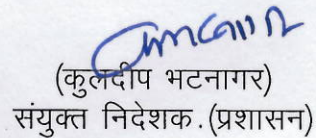 (कुलदीप भटनागर)
संयुक्त निदेशक.(प्रशासन)